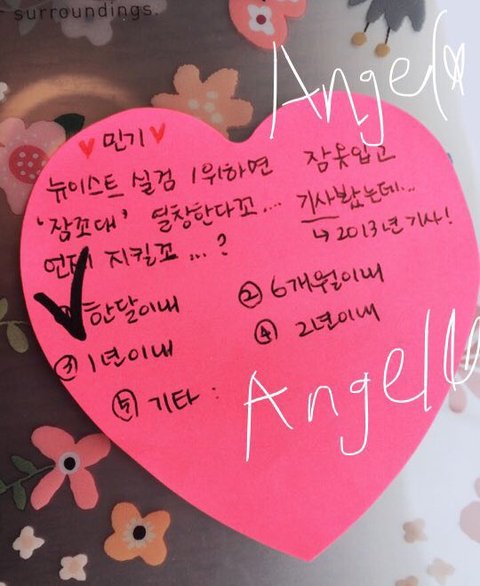 surroundings.
Angel
민기
뉴이스트 실검 1위하면 잠옷입고
'잠꼬대' 열창한다꼬... 기사봤는데...
↳ 2013년 기사!
언제 지킬꼬...?
① 한달이내 ② 6개월이내
③ 1년이내 ④ 2년이내
⑤ 기타 :
Angel